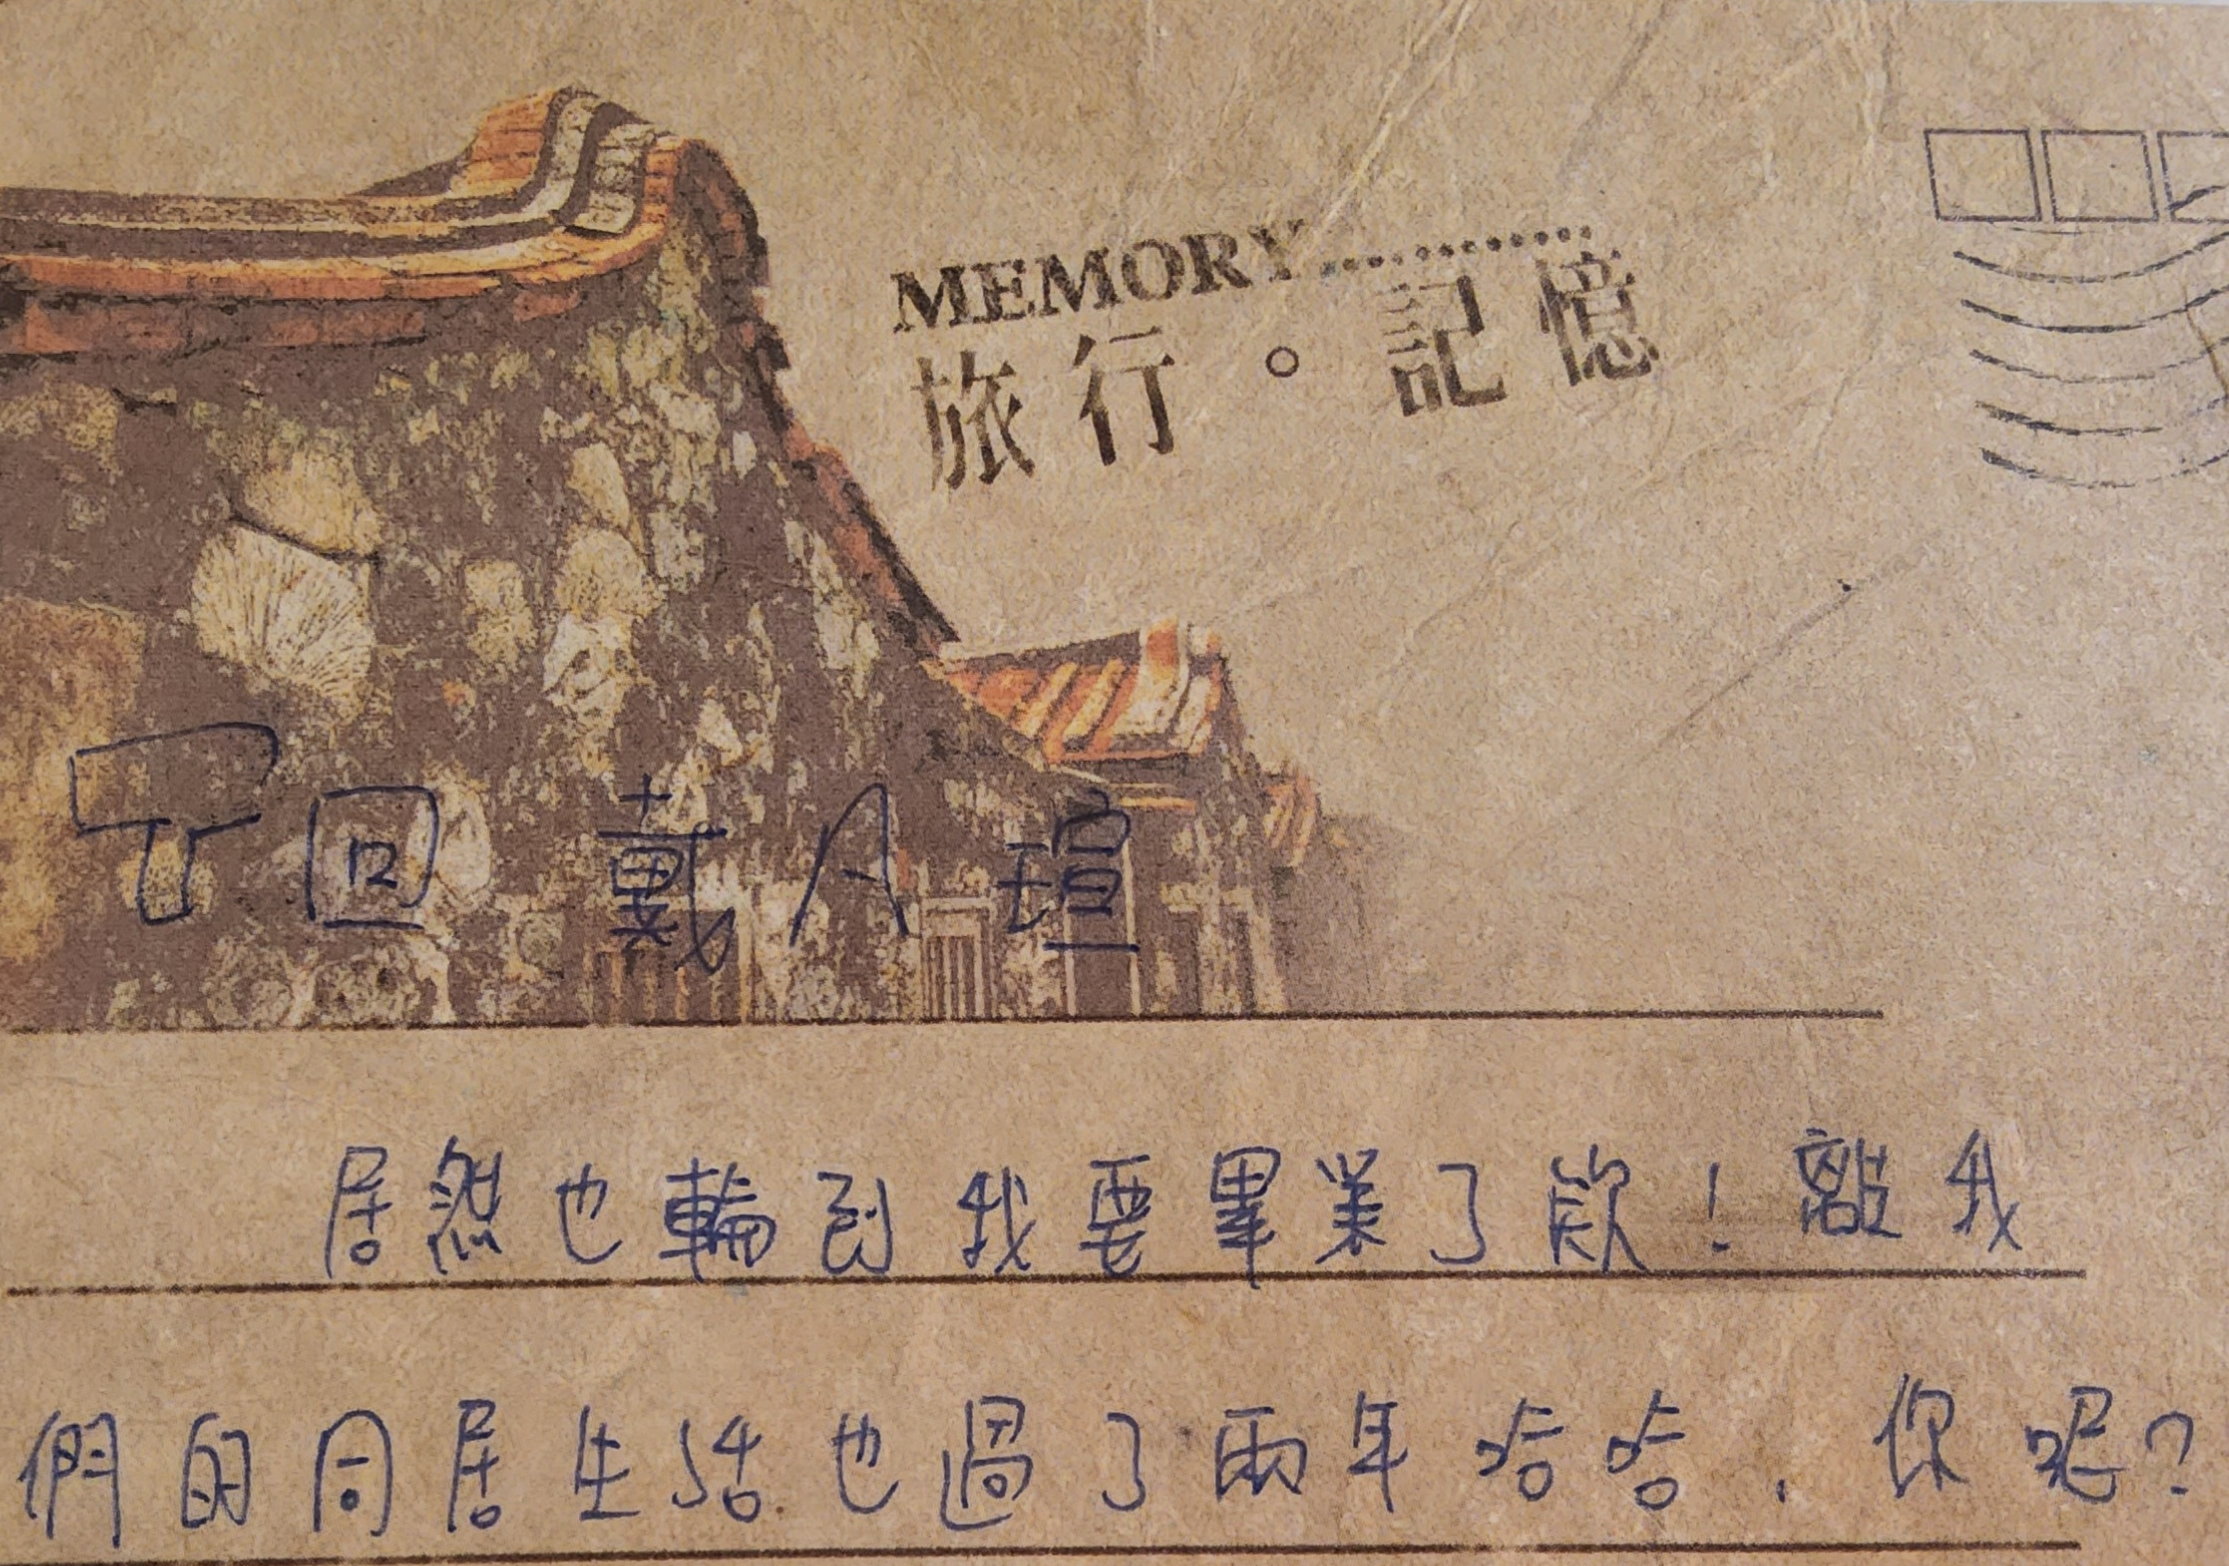 MEMORY............
旅行。記憶
回 戴 A 瑄
居然也輪到我要畢業了欸！離我
們的同居生活也過了兩年哈哈．你呢？